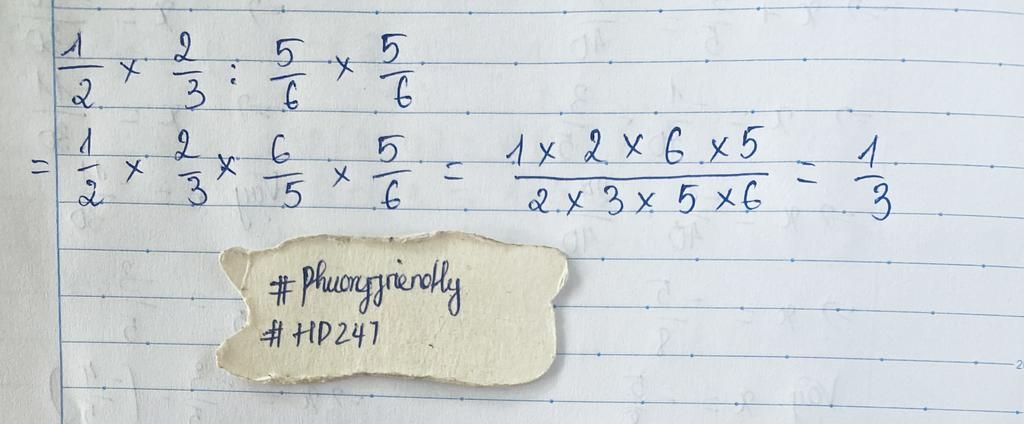 1/2 × 2/3 : 5/6 × 5/6
= 1/2 × 2/3 × 6/5 × 5/6 = (1 × 2 × 6 × 5)/(2 × 3 × 5 × 6) = 1/3
# Phuongfriendly
# HD247